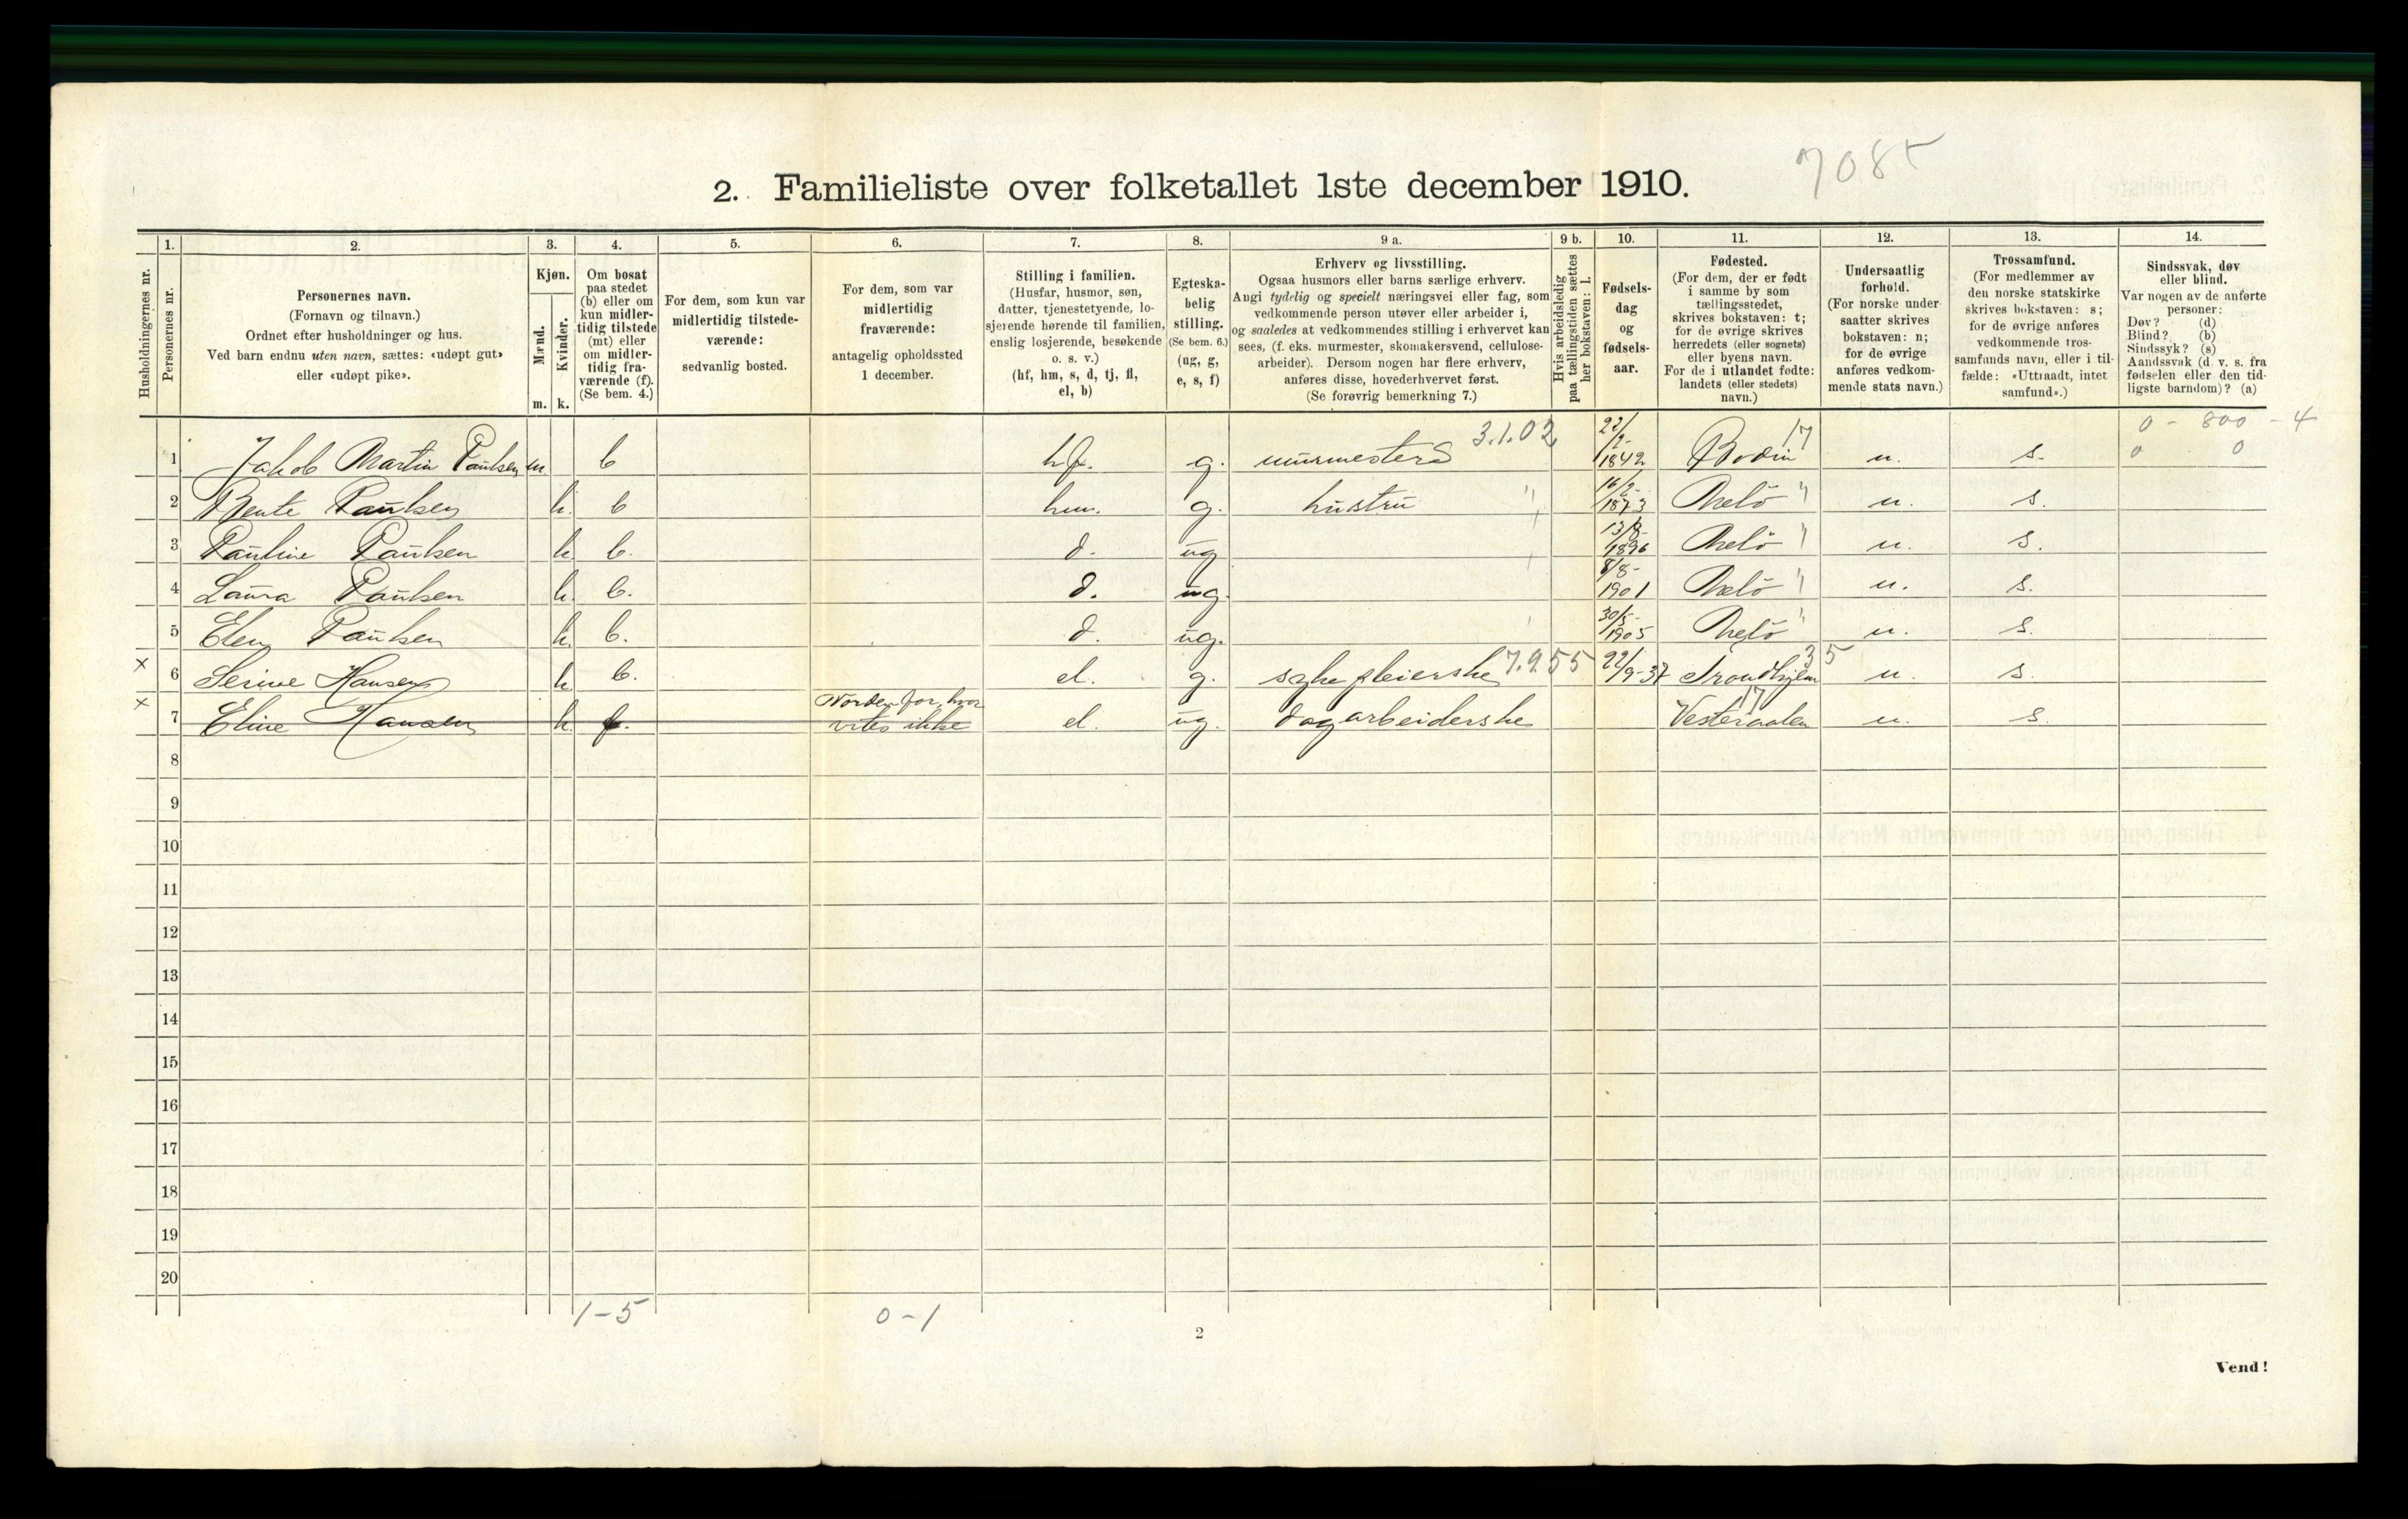 7085
2. Familieliste over folketallet 1ste december 1910.
Husholdningernes nr.
1. Personernes nr.
2. Personernes navn.
(Fornavn og tilnavn.)
Ordnet efter husholdninger og hus.
Ved barn endnu uten navn, sættes: «udøpt gut»
eller «udøpt pike».
3. Kjøn.
Mænd. m.
Kvinder. k.
4. Om bosat
paa stedet
(b) eller om
kun midler-
tidig tilstede
(mt) eller
om midler-
tidig fra-
værende (f).
(Se bem. 4.)
5. For dem, som kun var
midlertidig tilstede-
værende:
sedvanlig bosted.
6. For dem, som var
midlertidig
fraværende:
antagelig opholdssted
1 december.
7. Stilling i familien.
(Husfar, husmor, søn,
datter, tjenestetyende, lo-
sjerende hørende til familien,
enslig losjerende, besøkende
o. s. v.)
(hf, hm, s, d, tj, fl,
el, b)
8. Egteska-
belig
stilling.
(Se bem. 6.)
(ug, g,
e, s, f)
9 a. Erhverv og livsstilling.
Ogsaa husmors eller barns særlige erhverv.
Angi tydelig og specielt næringsvei eller fag, som
vedkommende person utøver eller arbeider i,
og saaledes at vedkommendes stilling i erhvervet kan
sees, (f. eks. murmester, skomakersvend, cellulose-
arbeider). Dersom nogen har flere erhverv,
anføres disse, hovederhvervet først.
(Se forøvrig bemerkning 7.)
9 b. Hvis arbeidsledig
paa tællingstiden sættes
her bokstaven: l.
10. Fødsels-
dag
og
fødsels-
aar.
11. Fødested.
(For dem, der er født
i samme by som
tællingsstedet,
skrives bokstaven: t;
for de øvrige skrives
herredets (eller sognets)
eller byens navn.
For de i utlandet fødte:
landets (eller stedets)
navn.)
12. Undersaatlig
forhold.
(For norske under-
saatter skrives
bokstaven: n;
for de øvrige
anføres vedkom-
mende stats navn.)
13. Trossamfund.
(For medlemmer av
den norske statskirke
skrives bokstaven: s;
for de øvrige anføres
vedkommende tros-
samfunds navn, eller i til-
fælde: «Uttraadt, intet
samfund».)
14. Sindssvak, døv
eller blind.
Var nogen av de anførte
personer:
Døv? (d)
Blind? (b)
Sindssyk? (s)
Aandssvak (d. v. s. fra
fødselen eller den tid-
ligste barndom)? (a)
0 - 800 - 4
1 Jakob Martin Paulsen m b hf. g. murmester 3.1.02 1842 Bodin 17 n. s. 0 0
2 Bente Paulsen k. b hm. g. hustru " 16/2- 1873 Melö " n. s.
3 Pauline Paulsen k b. d. ug 13/8- 1896 Melö " n. s.
4 Laura Paulsen k b. d. ug. 8/8- 1901 Melö " n. s.
5 Elen Paulsen k. b. d. ug. 1905 Melö n. s.
x 6 Serine Hansen k b. el. g. sykepleierske 7.9.55 22/9-37 Trondhjem 35 n. s.
x 7 Eline Hansen k. f. Norden for, hvor
vites ikke el. ug. dagarbeiderske Vesteraalen 17 n. s.
8
9
10
11
12
13
14
15
16
17
18
19
20
1-5 0-1
2
Vend!